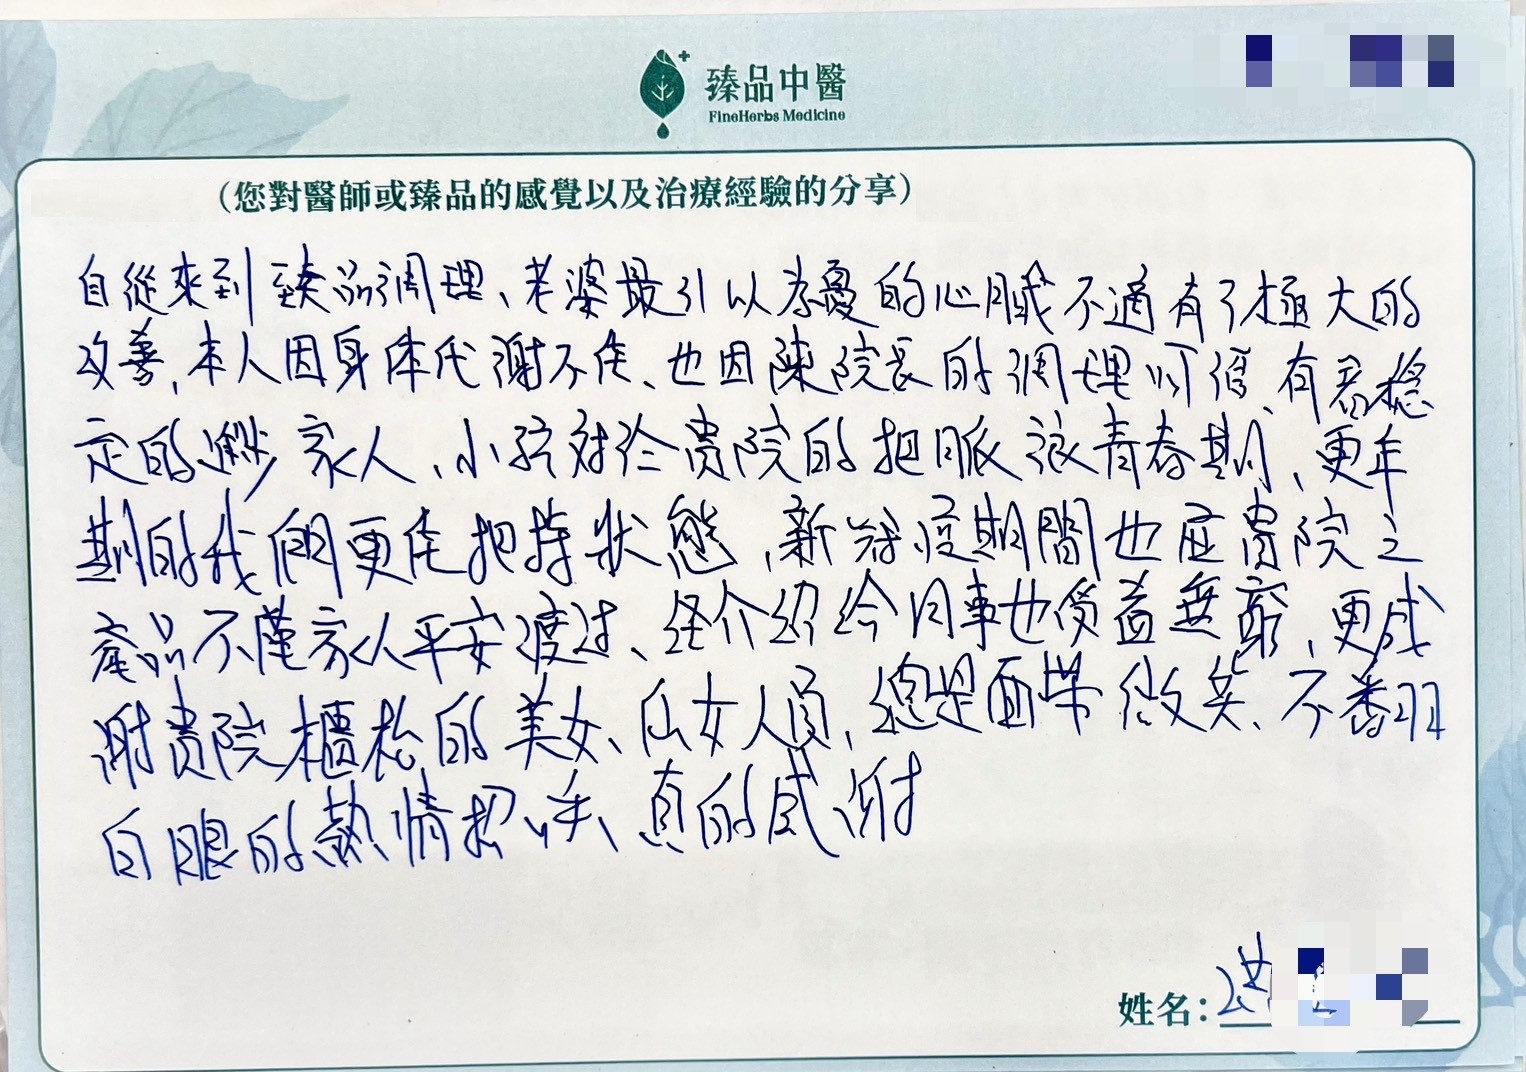 臻品中醫
FineHerbs Medicine
(您對醫師或臻品的感覺以及治療經驗的分享)
自從來到臻品調理、老婆最引以為憂的心臟不適有了極大的
改善,本人因身体代謝不佳、也因陳院長的調理、有著穩
定的進步家人、小孩對於貴院的把脈讓青春期、更年
期的我們更能把持狀態,新冠疫期間也在貴院之
產品不僅家人平安渡过、經介紹給同事也受益無窮,更感
謝貴院櫃枱的美女、仙女人員,總是面帶微笑、不番羽
白眼的熱情招呼、真的感謝
姓名:洪